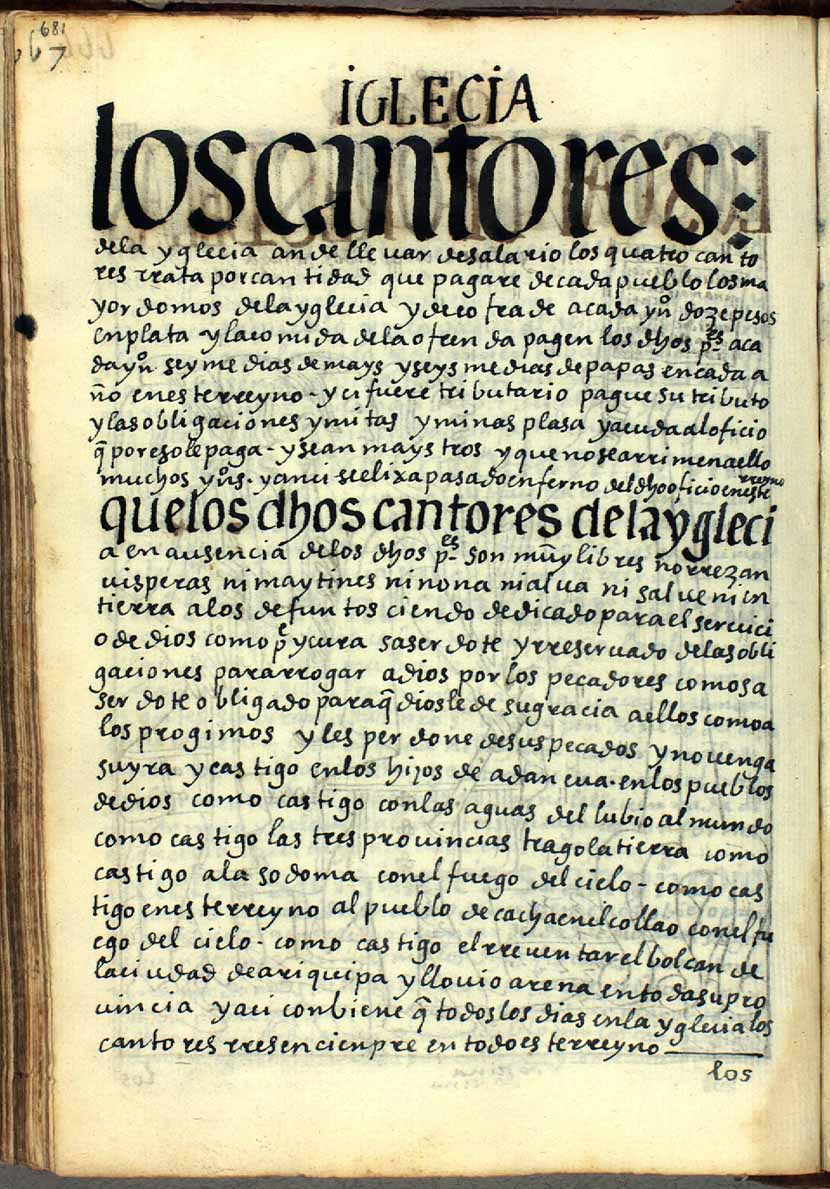 681
667
iGLECiA
los cantores:
de la yglecia an de lle uar de salario los quatro canto
res rrata por cantidad que pagare de cada pueblo los ma
yordomos de la yglecia y de cofrade a cada yṇo doze pesos
en plata - y la comida de la ofrenda pagen los dhos p.es a ca
da yno sey medias de mays y seys medias de papas en cada a
ño en este rreyno - y ci fuere tributario pague su tributo
y las obligaciones y mitas y minas plasa y acuda al oficio
q̃ por eso le paga - y sean maystros y que no se arrimen a ello
muchos yos - y anci se elixa pasado enfermo del dho oficio en este rreyno
que los dhos cantores de la ygleci
a en ausencia de los dhos p.es son muy libres no rrezan
uisperas ni maytines ni nona ni alua ni salue ni en
tierra a los defuntos ciendo dedicado para el seruici
o de dios como p.e y cura saserdote y rreseruado de las obli
gaciones para rrogar a dios por los pecadores como sa
serdote obligado para q̃ dios le de su gracia a ellos como a
los progimos y les perdone de sus pecados y no uenga
su yra y castigo en los hijos de adan eua - en los pueblos
de dios como castigo con las aguas del lubio al mundo
como castigo las tres prouincias trago la tierra como
castigo a la sodoma con el fuego del cielo - como cas
tigo en este rreyno al pueblo de cacha en el collao con el fu
ego del cielo - como castigo el rreuentar el bolcan de
la ciudad de ariquipa y llouio arena en toda su pro
uincia y aci conbiene q̃ todos los dias en la yglecia los
cantores rresen cienpre en todo este rreyno
los